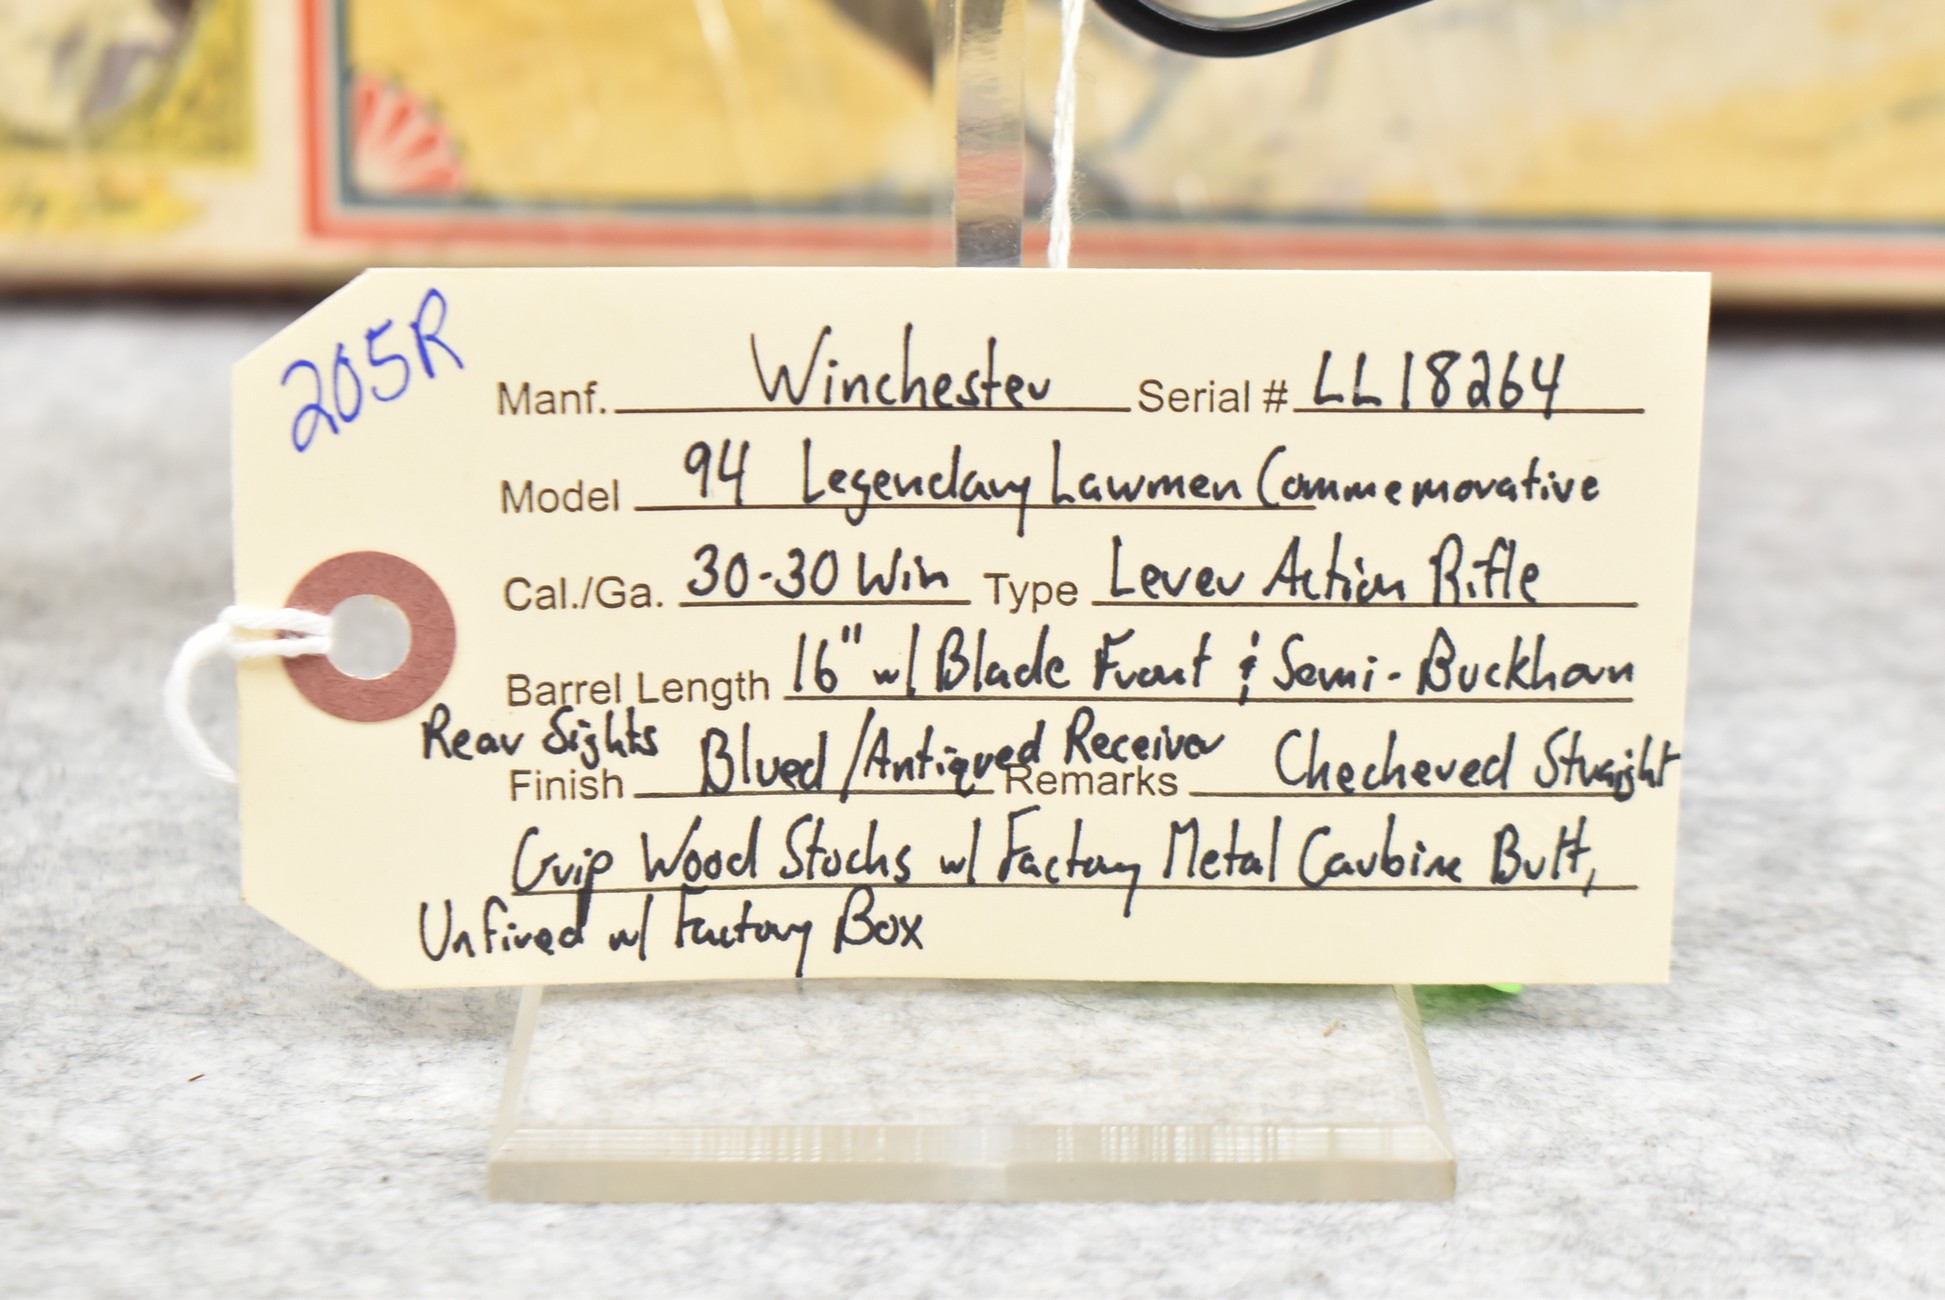 205R
Manf. Winchester Serial # LL18264
Model 94 Legendary Lawmen Commemorative
Cal./Ga. 30-30 Win Type Lever Action Rifle
Barrel Length 16" w/ Blade Front & Semi-Buckhorn
Rear Sights
Finish Blued/Antiqued Receiver Remarks Checkered Straight
Grip Wood Stocks w/ Factory Metal Carbine Butt,
Unfired w/ Factory Box